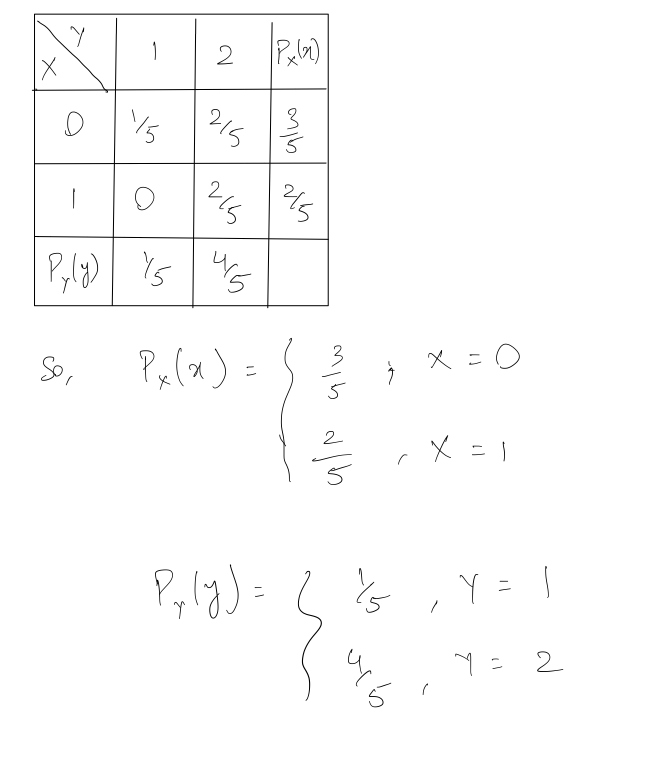 X Y 1 2 Pₓ(x)
0 1/5 2/5 3/5
1 0 2/5 2/5
P_Y(y) 1/5 4/5
So, Pₓ(x) = { 3/5 ; X = 0
2/5 , X = 1
P_Y(y) = { 1/5 , Y = 1
4/5 , Y = 2